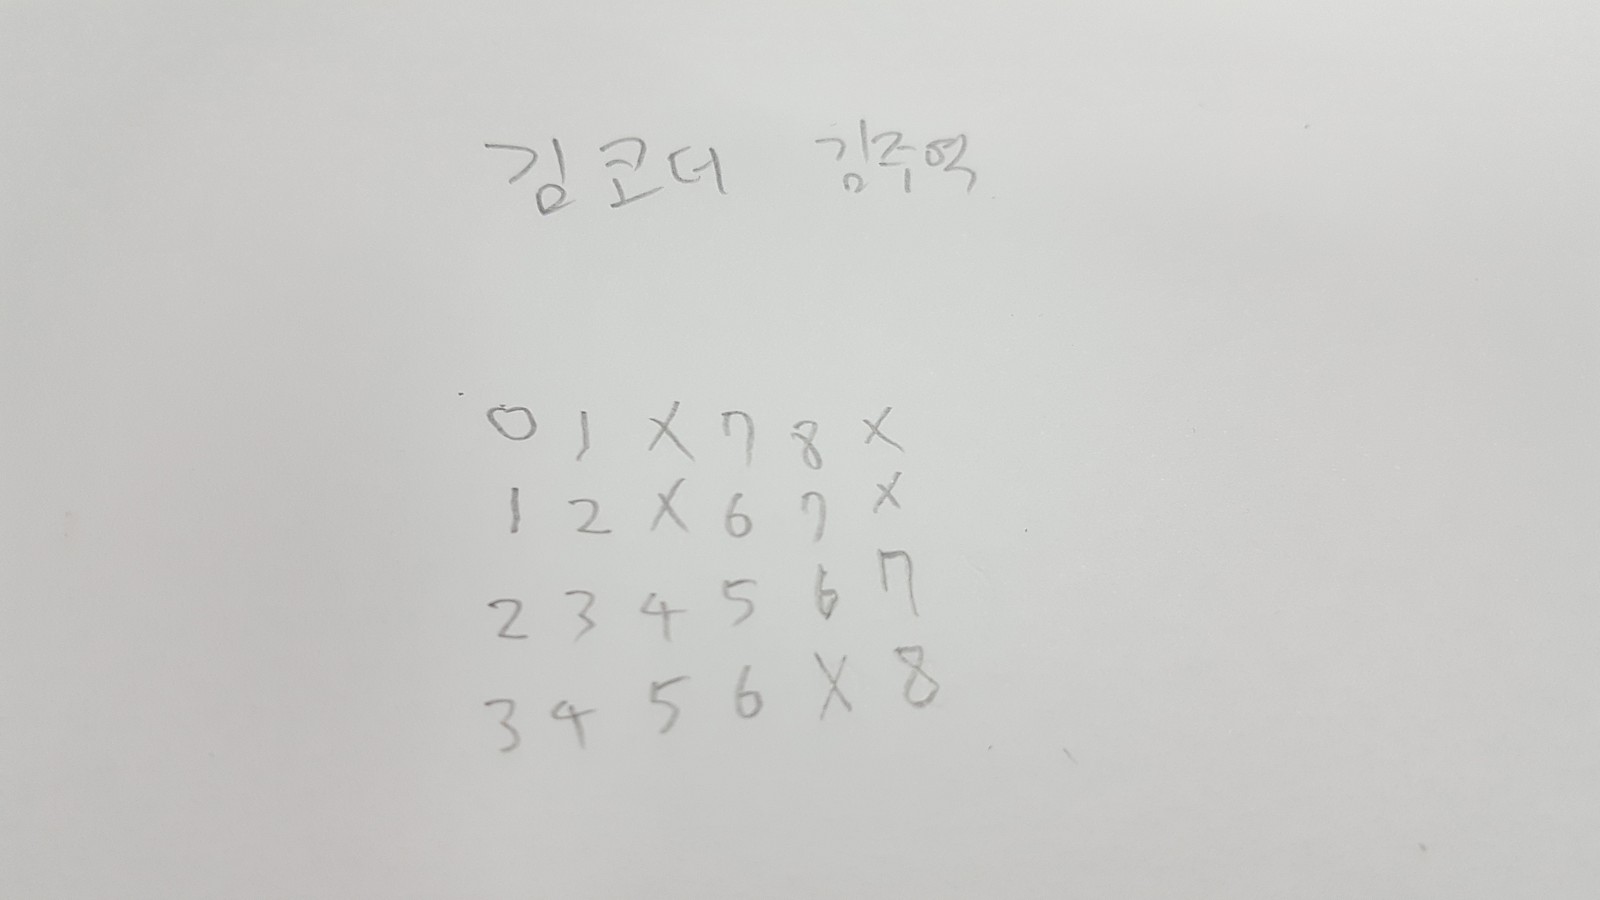 김코더 김주역
0 1 X 7 8 X
1 2 X 6 7 X
2 3 4 5 6 7
3 4 5 6 X 8